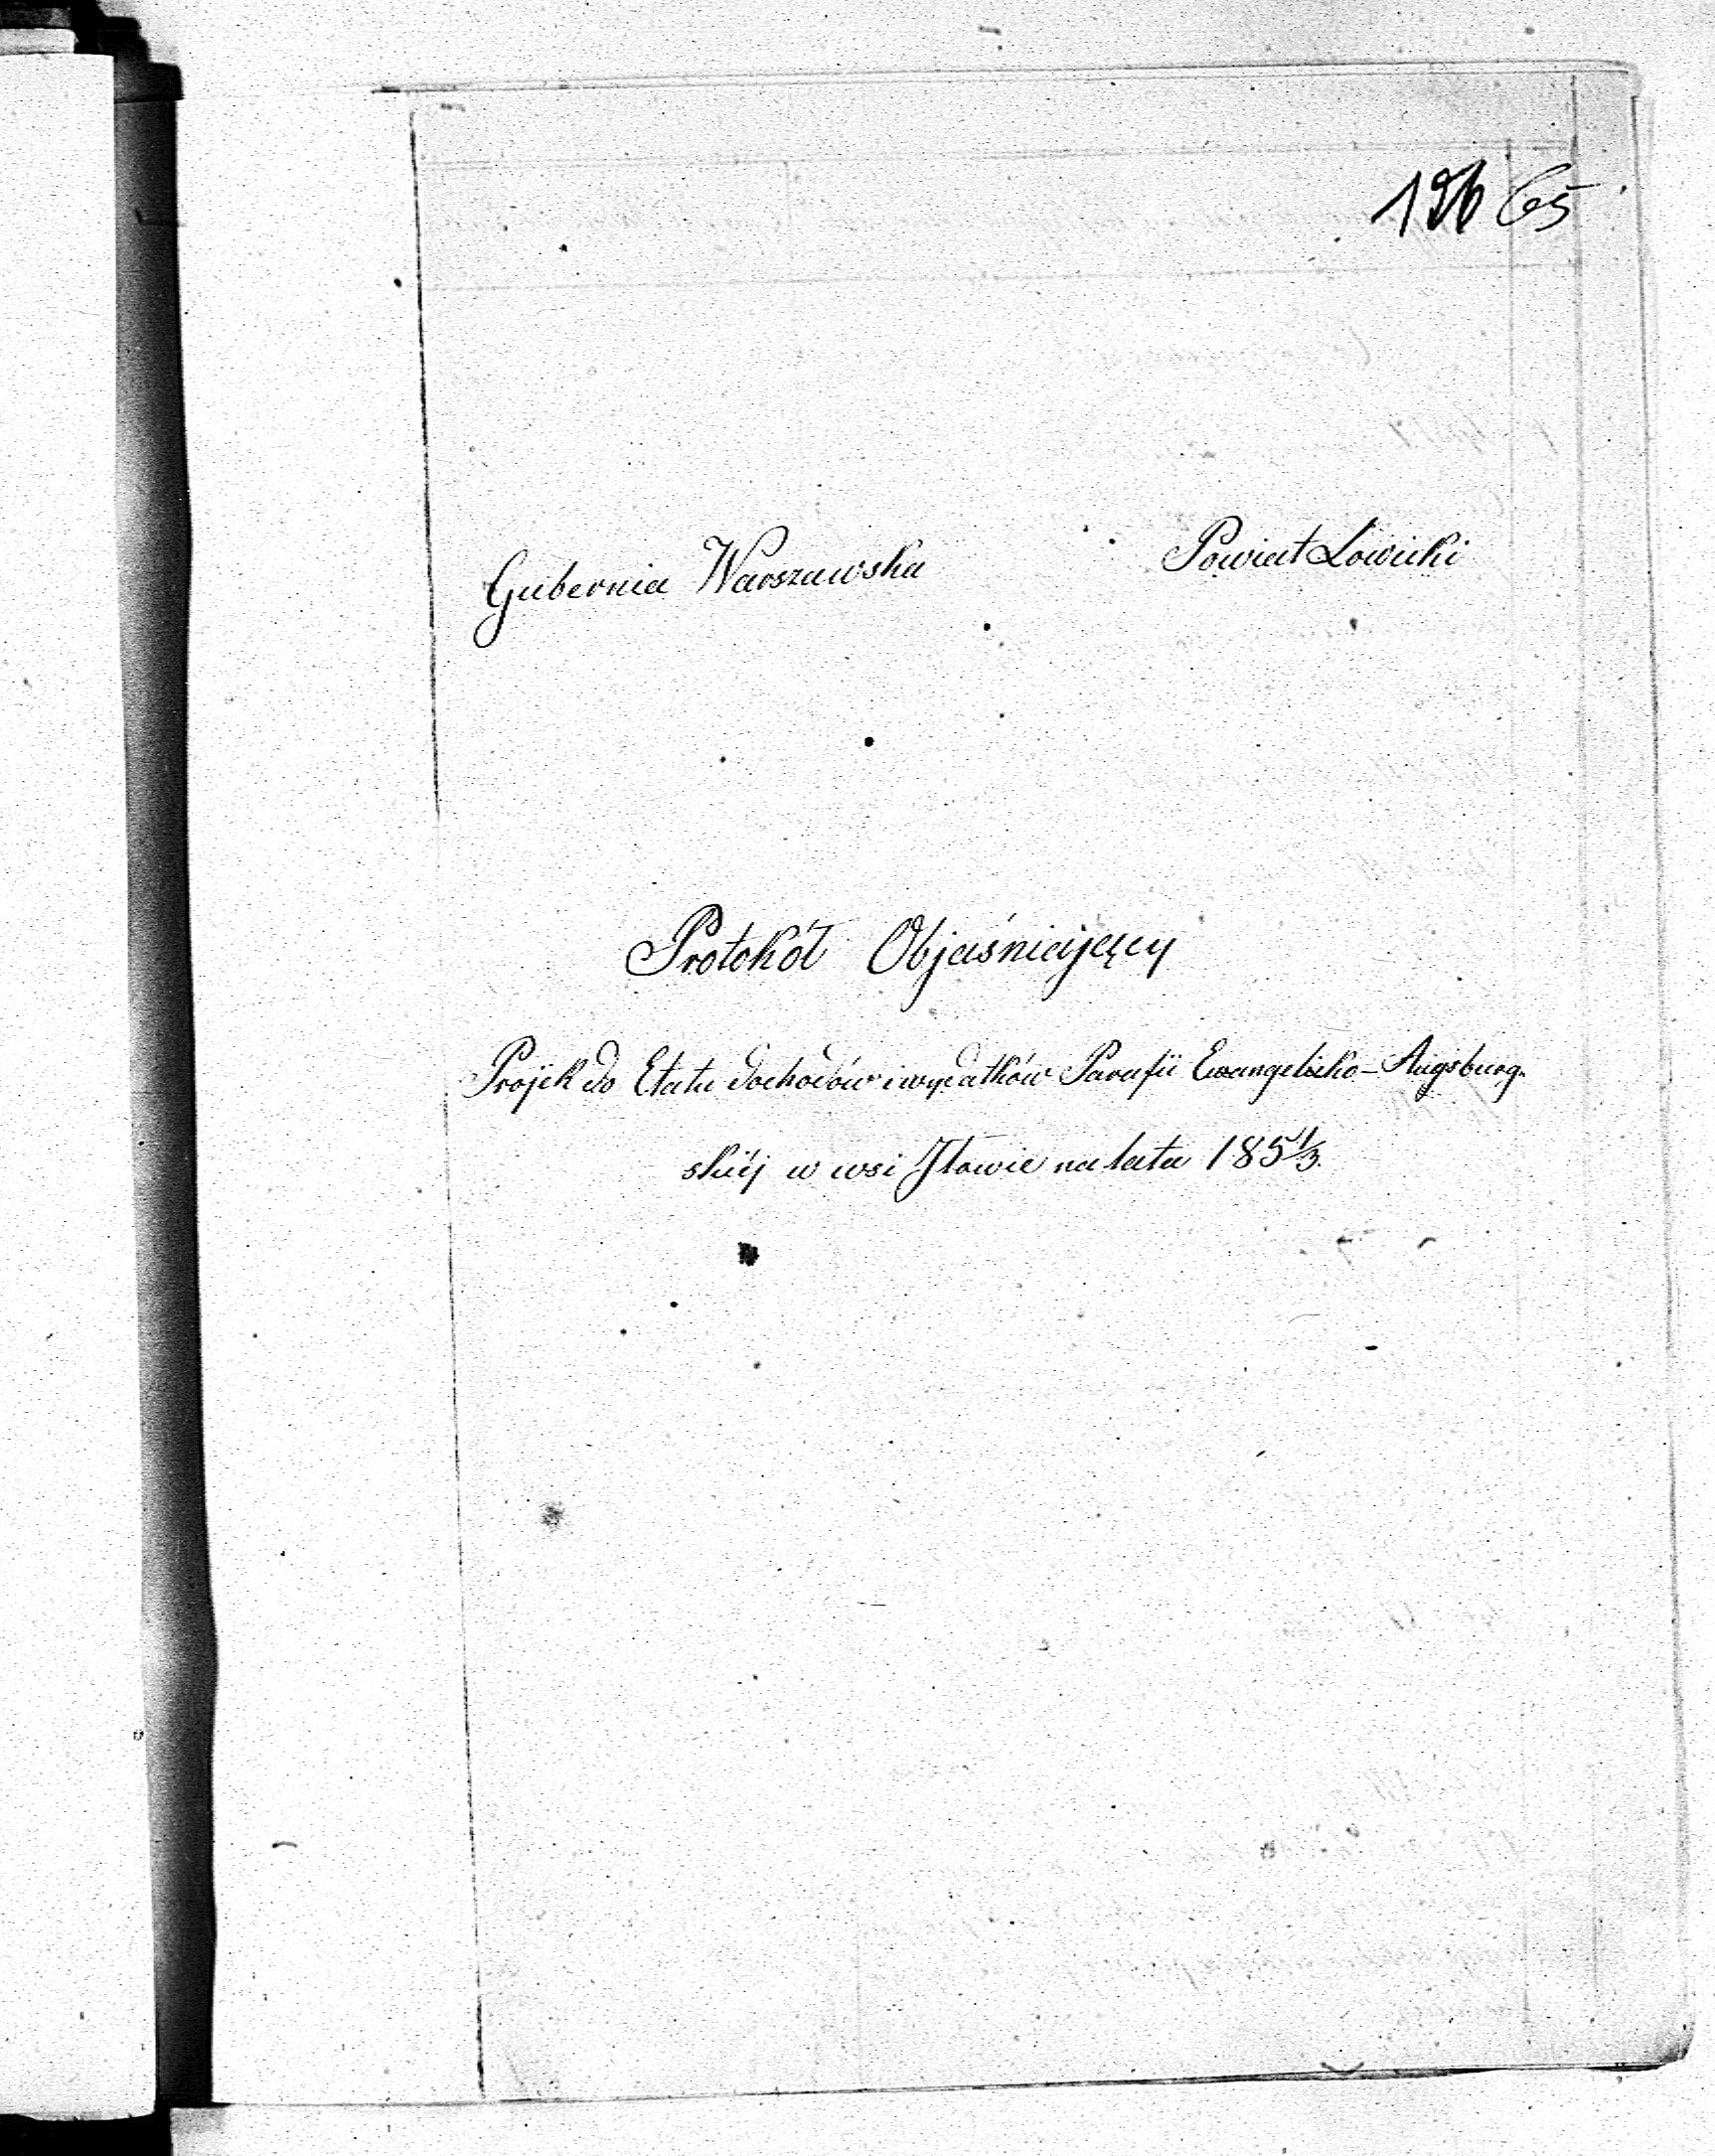 196 65
Gubernia Warszawska Powiat Łowicki
Protokół Objaśniający
Projek do Etatu dochodów i wydatków Parafii Ewangelicko-Augsburg-
skiéj w wsi Iłowie na lata 185 1/3.